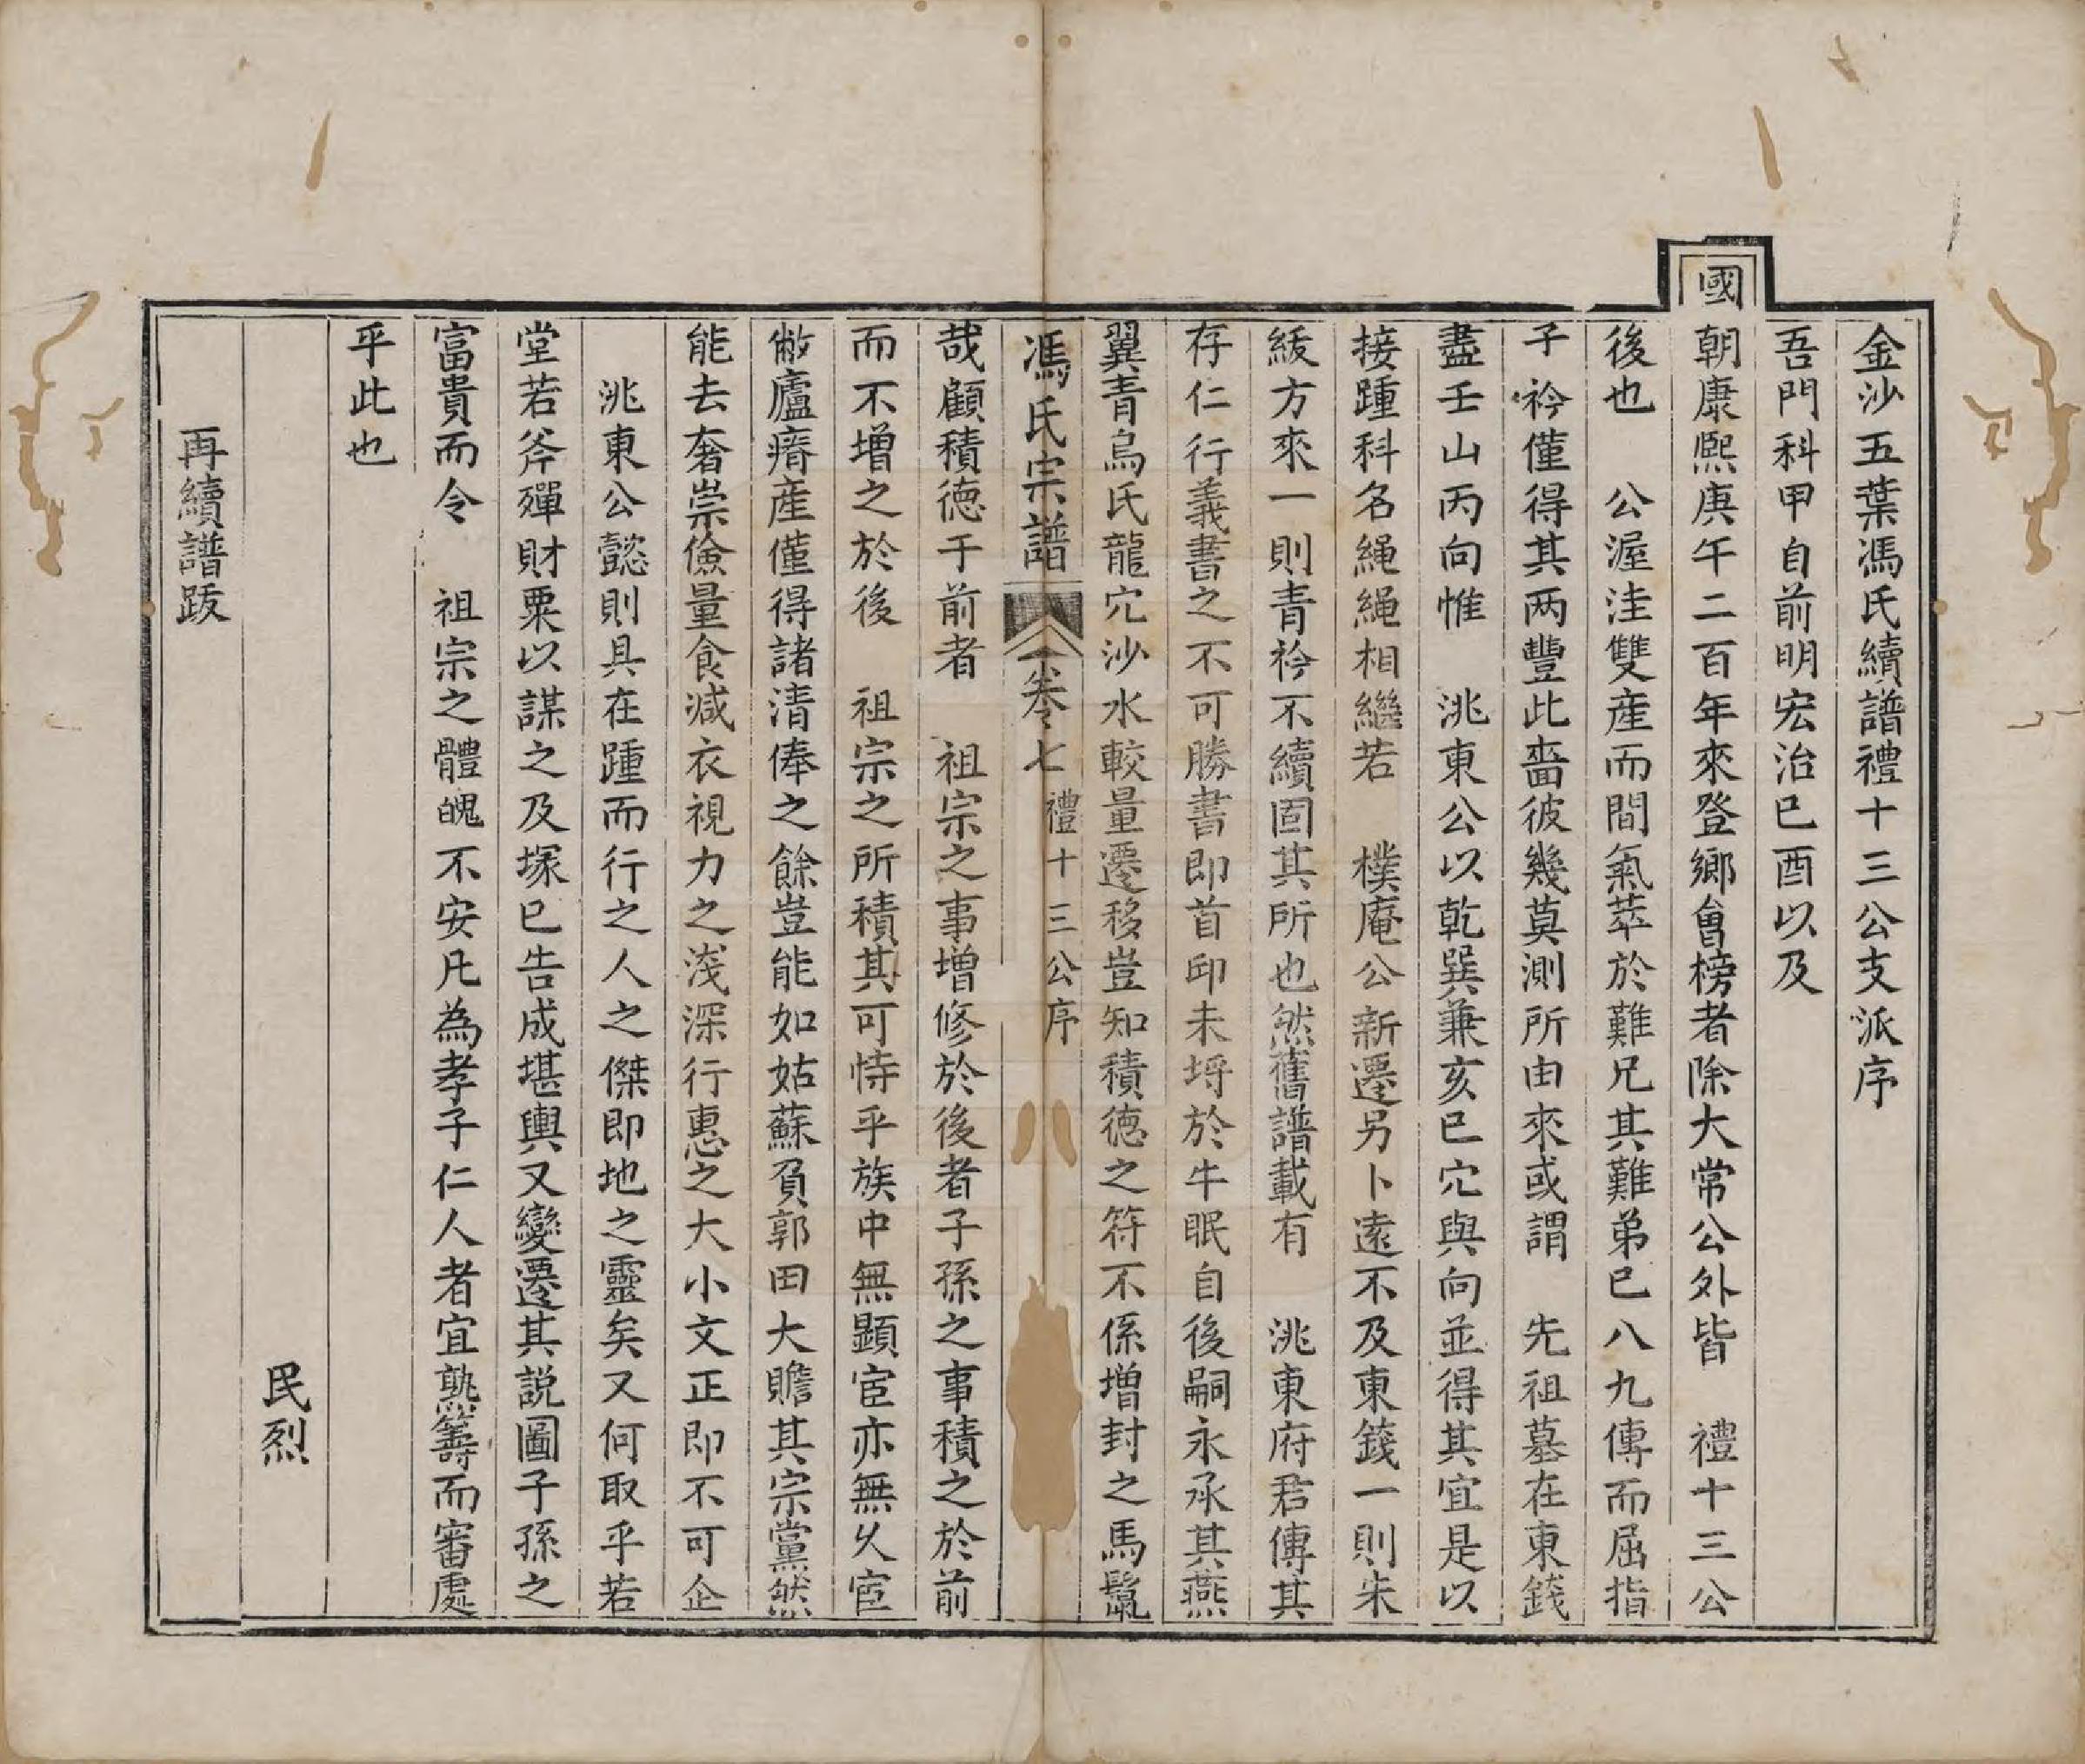 金沙五葉馮氏續譜禮十三公支派序
吾門科甲自前明宏治己酉以及
國朝康熙庚午二百年來登鄉會榜者除大常公外皆　禮十三公
後也　公渥洼雙産而間氣萃於難兄其難弟已八九傳而屈指
子衿僅得其两豐此嗇彼幾莫測所由來或謂　先祖墓在東錢
盡壬山丙向惟　洮東公以乾巽兼亥巳穴與向並得其宜是以
接踵科名繩繩相繼若　樸庵公新遷另卜遠不及東錢一則朱
紱方來一則青衿不續固其所也然舊譜載有　洮東府君傳其
存仁行義書之不可勝書即首邱未埓於牛眠自後嗣永承其燕
翼青烏氏龍穴沙水較量遷移豈知積德之符不係增封之馬鬣
馮氏宗譜　卷七　禮十三公序
哉顧積德于前者　祖宗之事增修於後者子孫之事積之於前
而不增之於後　祖宗之所積其可恃乎族中無顯宦亦無久宦
敝廬瘠産僅得諸清俸之餘豈能如姑蘇負郭田大贍其宗黨然
能去奢崇儉量食減衣視力之淺深行惠之大小文正即不可企
洮東公懿則具在踵而行之人之傑即地之靈矣又何取乎若
堂若斧殫財粟以謀之及塚已告成堪輿又變遷其説圖子孫之
富貴而令　祖宗之體魄不安凡為孝子仁人者宜熟籌而審處
乎此也
民烈
再續譜跋